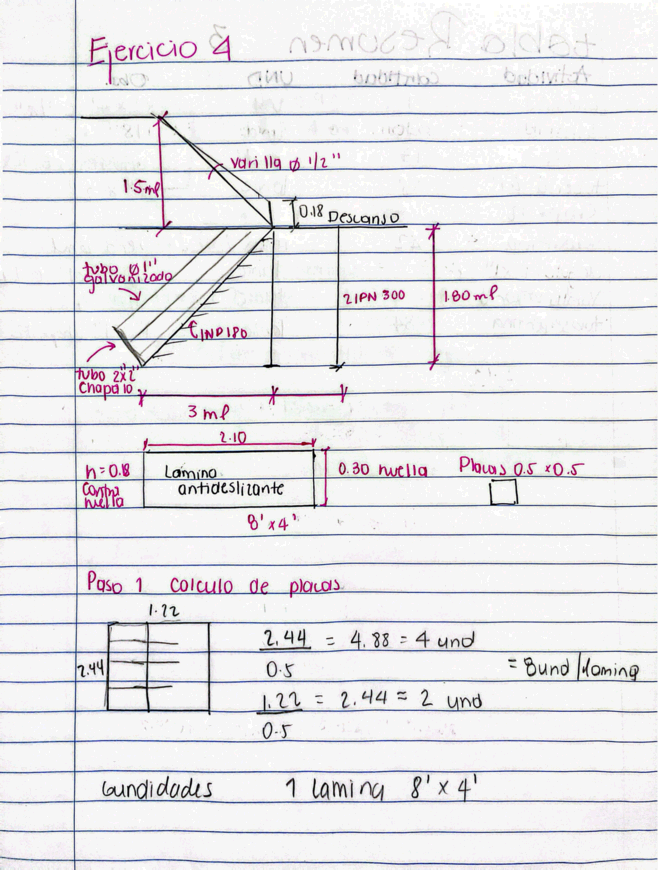 Ejercicio 4
varilla Ø 1/2"
1.5ml
0.18 Descanso
tubo Ø1"
galvanizado
2 IPN 300
1.80 ml
tubo 2"x2"
chapa 10
3 ml
2.10
h=0.18
Contra
huella
Lamina
antideslizante
0.30 huella
Placas 0.5 x 0.5
8' x 4'
Paso 1 Calculo de placas
1.22
2.44
2.44 = 4.88 = 4 und
0.5
= 8und/lamina
1.22 = 2.44 ≈ 2 und
0.5
1 lamina 8' x 4'